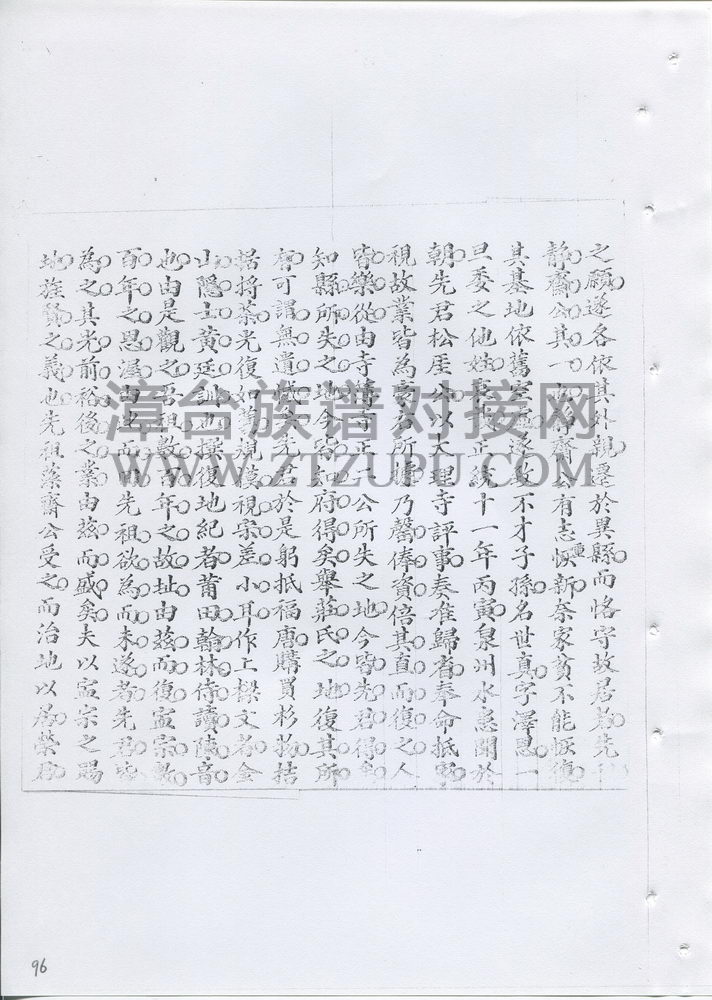 之願遂各依其外親遷於異縣而恪守故居者先
静齋公其一也齋公有志恢重新奈家貧不能恢復
其基地依舊空遂致不才子孫名世真字澤恩一
旦委之他姓正統十一年丙寅泉州水患聞於
朝先君松崖以大理寺評事奏准歸省奉命抵家
視故業皆為所據乃罄俸資倍其直而復之人
皆樂從由寺正公所失之地今皆先君得
知縣所失之地今知府得矣舉莊氏之地復其所
可謂無遺先君於是躬抵福唐購買杉物拮
据將葺光復如舊規模視宗差小耳作上樑文者金
山隱士黃廷訓也撰復地紀者莆田翰林待讀陳音
也由是觀之吾祖數百年之故址由茲而復宣宗數
百年之恩渥由此而先祖欲為而未遂者先君皆
為之其光前裕後之業由茲而盛矣夫以宣宗之賜
地旌賢之義也先祖藻齋公受之而治地以居榮君
漳台族谱对接网
WWW.ZTZUPU.COM
96